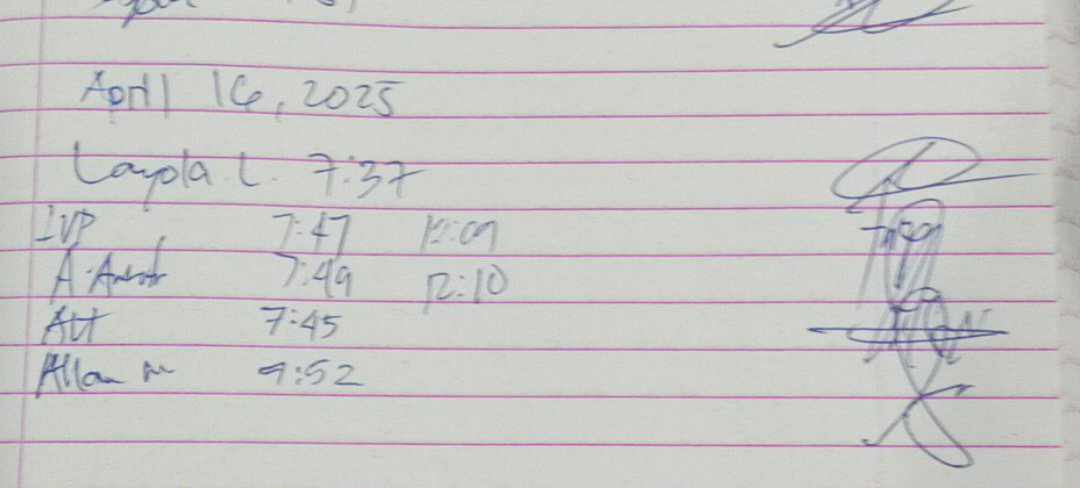 April 16, 2025
Layola L. 7:37
IVP 7:47 12:09
A. 7:49 12:10
Att 7:45
Allan M 9:52